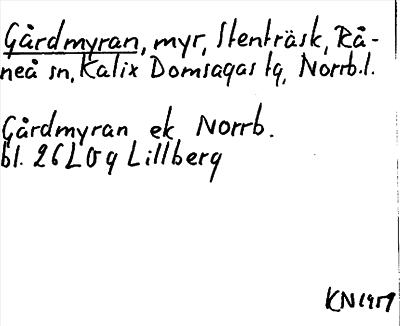 Gårdmyran, myr, Stenträsk, Rå-
neå sn, Kalix Domsagas tg, Norrb.l.
Gårdmyran ek Norrb.
bl. 26L0g Lillberg